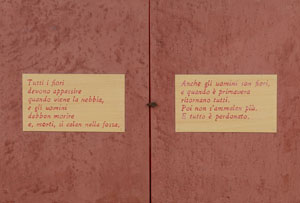 Tutti i fiori
devono appassire
quando viene la nebbia,
e gli uomini
debbon morire
e, morti, si calan nella fossa.
Anche gli uomini son fiori,
e quando è primavera
ritornano tutti.
Poi non s'ammalan più.
E tutto è perdonato.